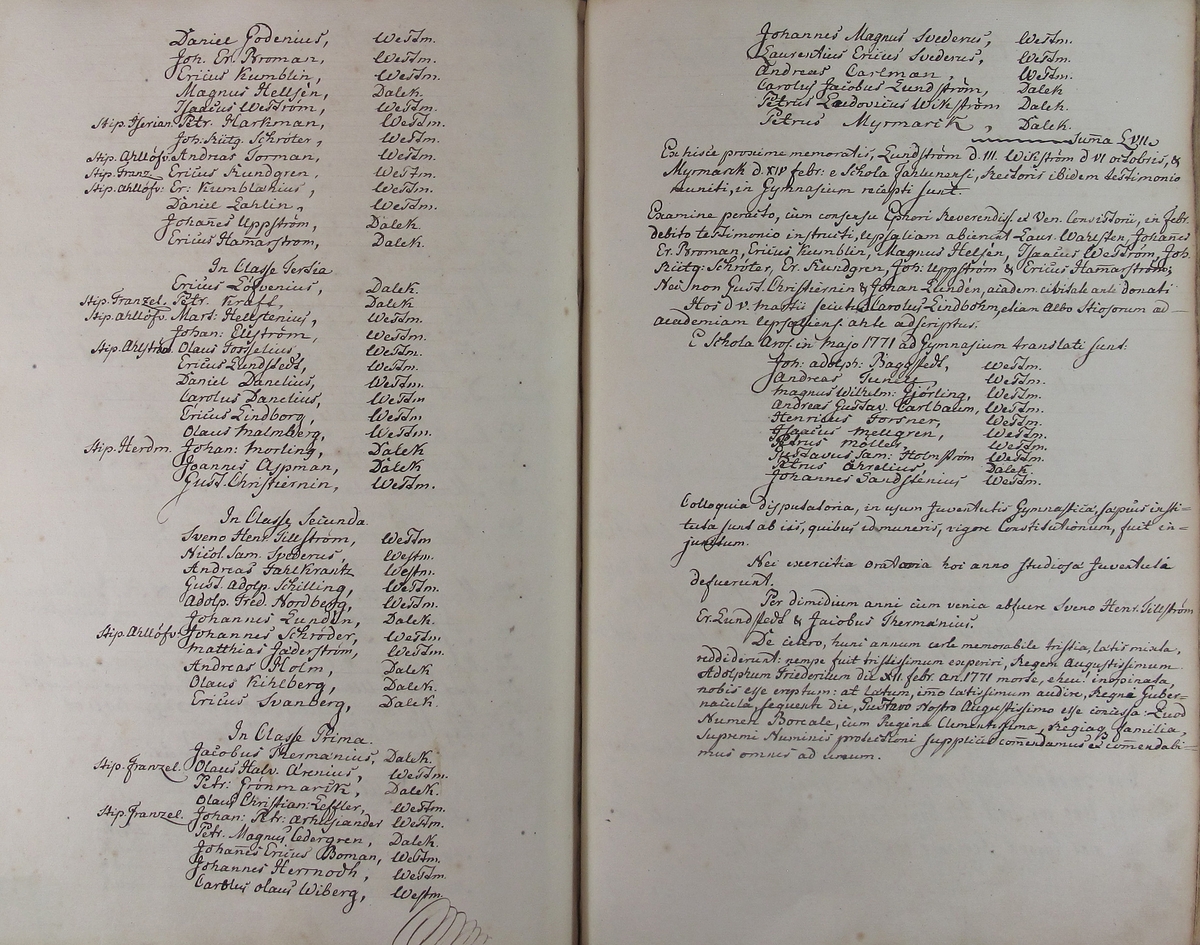 Daniel Godenius, Westm.
Joh. Er. Broman, Westm.
Ericus Kumblin, Westm.
Magnus Hellsén, Dalek.
Isaacus Weström, Westm.
Petr. Harkman, Westm.
Joh. Rutg. Schröter, Westm.
Stip. Ahllöfv. Andreas Forman, Westm.
Stip. Franz. Ericus Rundgren, Westm.
Stip. Ahllöfv. Er: Kumblæus, Westm.
Daniel Zahlin, Westm.
Johañes Uppström, Dalek.
Ericus Hamarstrom, Dalek.
In Classe Tertia
Ericus Löfvenius, Dalek.
Stip. Franzel. Petr. Krafft, Dalek.
Stip. Ahllöfv. Mart: Hellstenius, Westm.
Johan: Elfström, Westm.
Olaus Forselius, Westm.
Ericus Lundstedt, Westm.
Daniel Danelius, Westm.
Carolus Danelius, Westm
Ericus Lindborg, Westm
Olaus Malmberg, Westm.
Stip. Herdm. Johan: Morling, Dalek
Joannus Aspman, Dalek
Gust. Christiernin, Westm.
In Classe Secunda.
Sveno Henr. Tillström, Westm
Nicol. Sam. Svederus, Westm.
Andreas Fahlkrantz Westm.
Gust. Adolp. Schilling, Westm.
Adolp. Fred. Nordberg, Westm.
Johannes Lundén, Dalek.
Stip. Ahllöfv. Johannes Schröder, Westm.
Matthias Jäderström, Westm.
Andreas Holm, Dalek
Olaus Kihlberg, Dalek.
Ericus Svanberg, Dalek.
In Classe Prima.
Jacobus Thermænius, Dalek.
Stip. Franzel. Olaus Halv. Arenius, Westm.
Petr: Grönmarck, Dalek.
Olaus Christian: Leffler, Westm.
Stip. Franzel. Johan: Petr: Arhusiander Westm.
Petr. Magnus Cedergren, Dalek.
Johañes Ericus Boman, Westm.
Johannes Herrnodh, Westm.
Carolus Olaus Wiberg, Westm.
Johannes Magnus Svederus, Westm.
Laurentius Ericus Svederus, Westm.
Andreas Carlman, Westm.
Carolus Jacobus Lundström, Dalek
Petrus Ludovicus Wikström Dalek.
Petrus Myrmarck, Dalek.
Suma LVII.
Ex hisce proxime memoratis, Lundström d. III. Wikström d VI octobris, &
Myrmarck d. XIV febr: e Schola Fahlunensi, Rectoris ibidem testimonio
muniti, in Gymnasium recepti sunt.
Examine peracto, cum consensu Ephori Reverendiss. et Ven. Consistorii, in febr.
debito testimonio instructi, Upsaliam abierunt Laur. Wahlsten, Johañes
Er. Broman, Ericus Kumblin, Magnus Hellsén, Isaacus Weström, Joh.
Rutg: Schröter, Er. Rundgren, Joh: Uppström & Ericus Hamarström;
Nec non Gust. Christiernin & Johan Lundén, eadem civitate ante donati
Hos d. V. Martii secutus Carolus Lindbohm, etiam Albo Stiosorum ad
academiam Upsaliens. ante adscriptus.
E Schola Aros. in Majo 1771 ad Gymnasium translati sunt:
Joh: Adolph: Baggstedt, Westm.
Andreas Westm.
Magnus Wilhelm: Gjörling, Westm.
Andreas Gustav. Carlbaum, Westm.
Henricus Forsner, Westm.
Isaacus Mellgren, Westm.
Petrus Möller, Westm.
Gustavus Sam: Holmström Westm.
Petrus Ahrelius, Dalek.
Johannes Sandstenius Westm.
Colloquia disputatoria, in usum Juventutis Gymnasticæ, sæpius insti=
tuta sunt ab iis, quibus id muneris, vigore Constitutionum, fuit in=
junctum.
Nec exercitia oratoria hoc anno studiosæ juventuti
defuerunt.
Per dimidium anni cum venia abfuere Sveno Henr. Tillström
Er. Lundstedt & Jacobus Thermænius.
De cetero, hunc annum certe memorabile tristia, lætis mixta,
reddiderunt: nempe fuit tristissimum experiri, Regem Augustissimum
Adolphum Friedericum die XII. febr. an. 1771 morte, eheu! inopinata,
nobis esse ereptum: at lætum, imo lætissimum audire, Regni Guber=
nacula, sequente die, Gustavo Nostro Augustissimo esse concessa: Quod
Numen Boreale, cum Regina Clementissima, Regiaq. familia,
Supremi Numinis protectioni supplices comendamus et comendabi=
mus omnes ad unum.